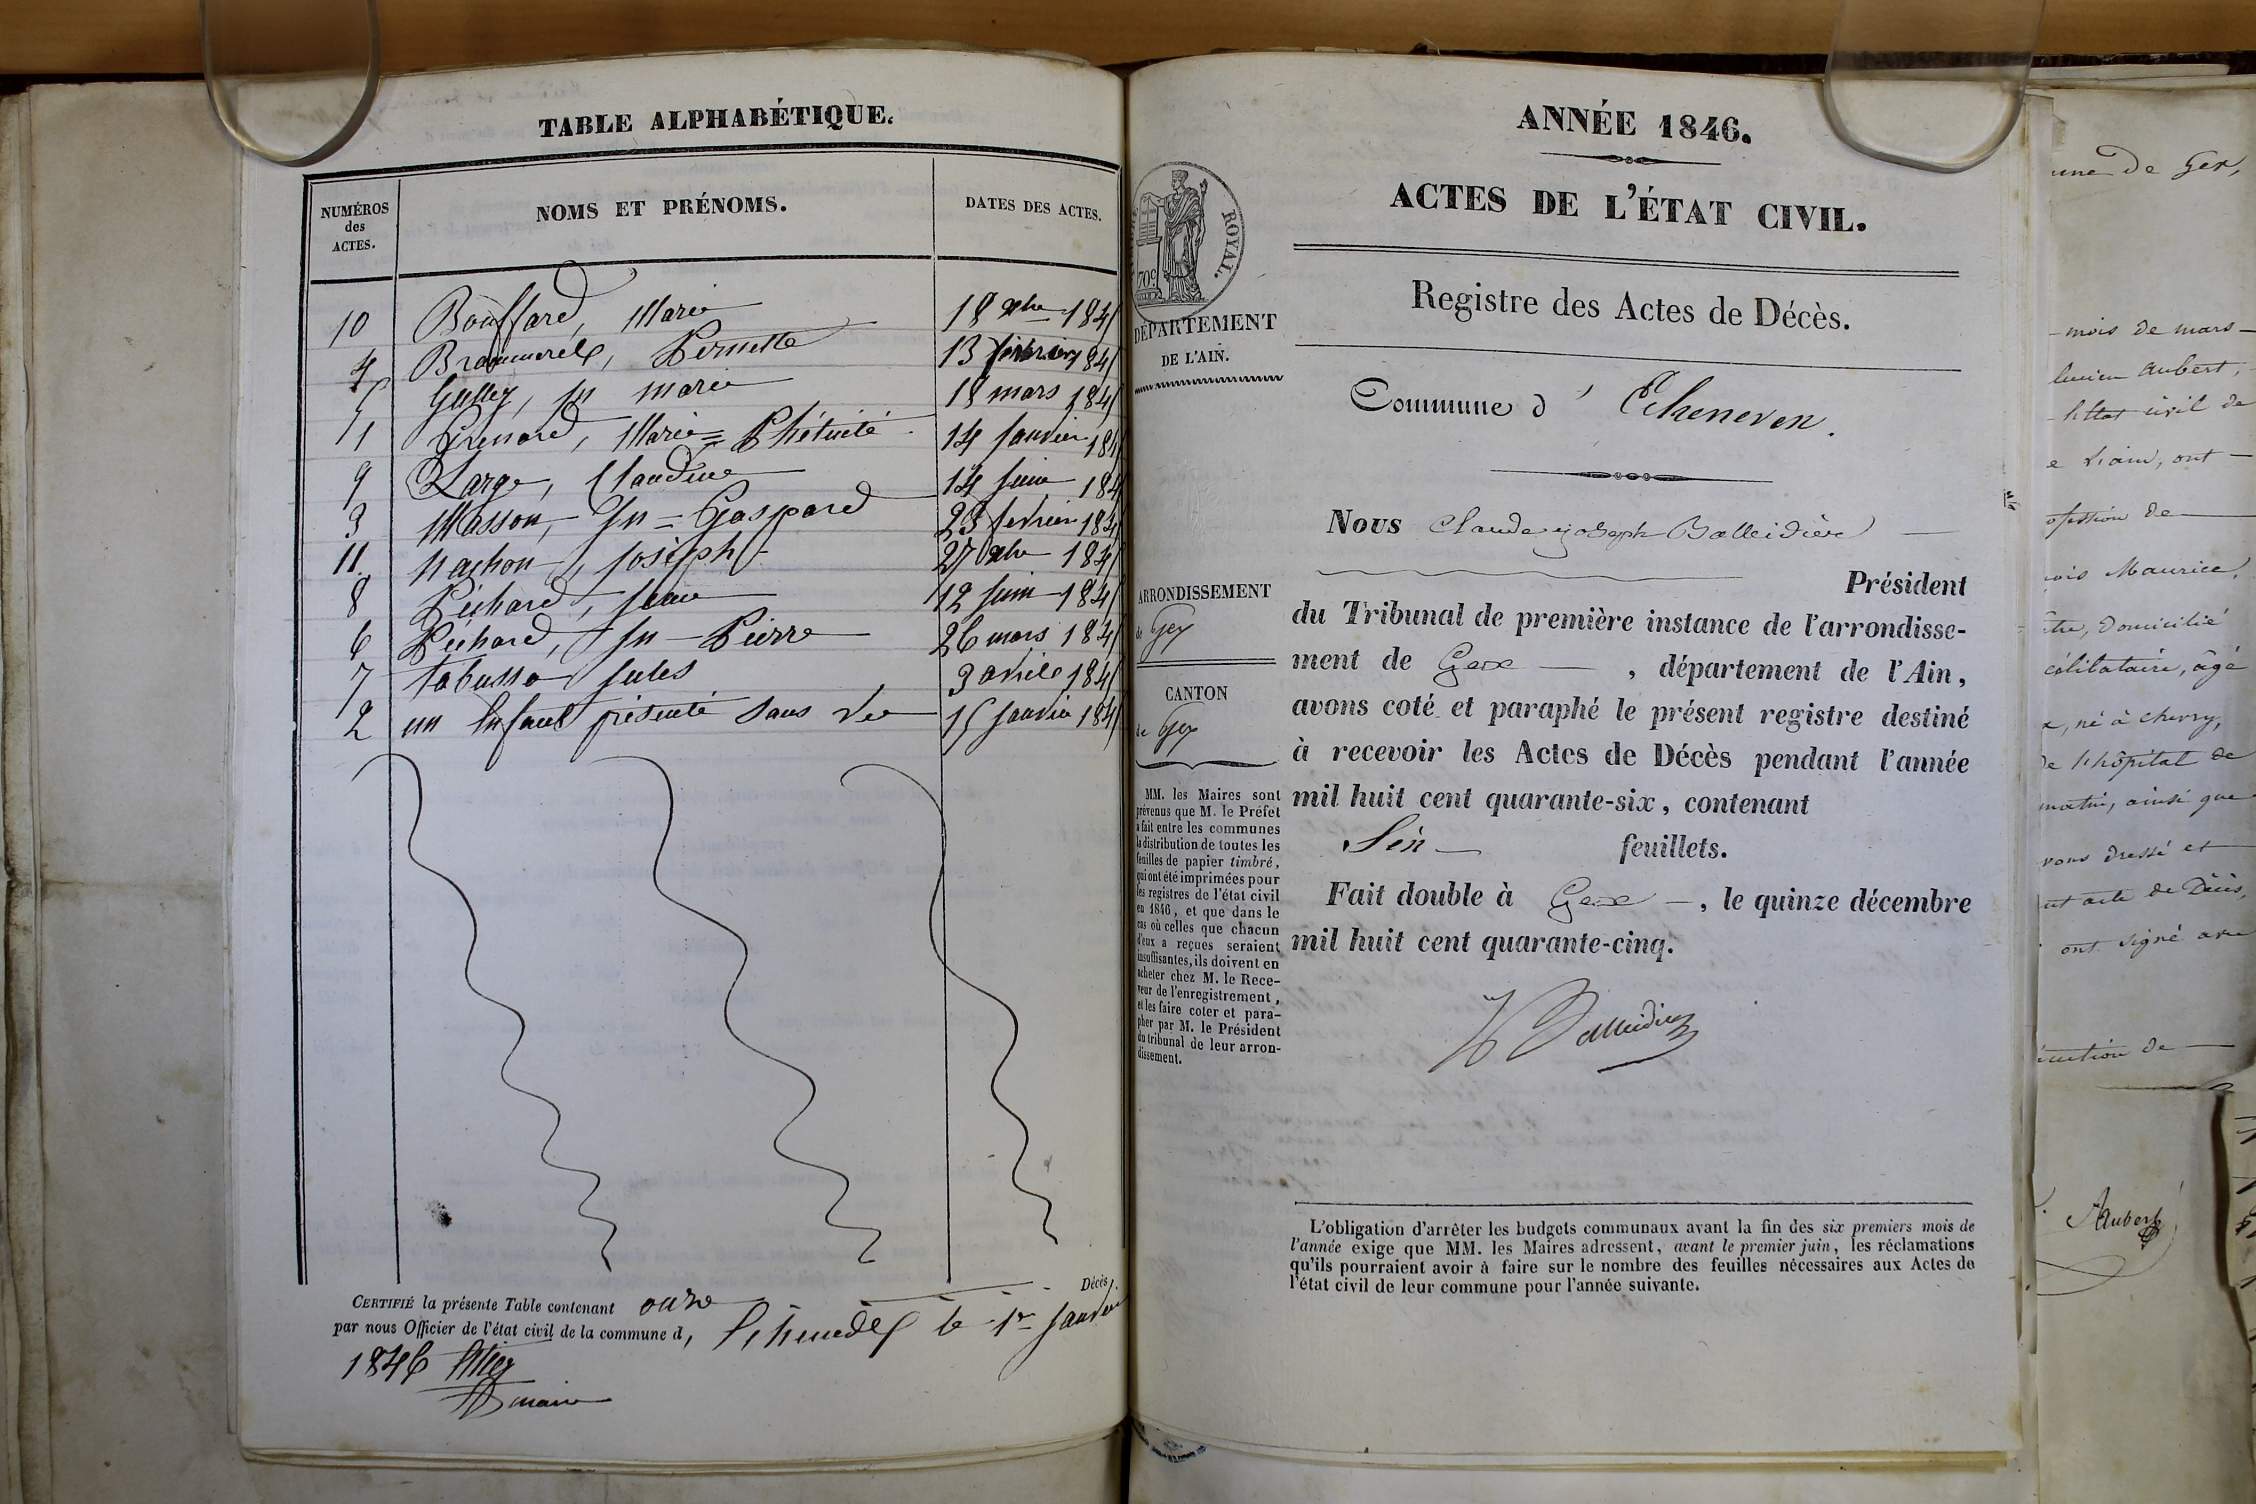 TABLE ALPHABÉTIQUE.
NUMÉROS
des
ACTES.
NOMS ET PRÉNOMS.
DATES DES ACTES.
10 Bouffard, Marie 18 xbre 184
4 Pernette 13 février 184
5 Jn marie 18 mars 184
1 Grenard, Marie = 14 Janvier 184
9 Large, Claudine 14 Juin 184
3 Masson, Jn = Gaspard 23 fevrier 184
11 Joseph 27 xbre 184
8 Péchard, 12 Juin 184
6 Péchard, Jn - Pierre 26 mars 184
7 tabusso Jules 3 avril 184
2 un Enfant présenté Sans Vie 15 Janvier 184
CERTIFIÉ la présente Table contenant onze Décès,
par nous Officier de l'état civil de la commune d, le 1er Janvier
1846
maire
ANNÉE 1846.
ACTES DE L'ÉTAT CIVIL.
Registre des Actes de Décès.
ROYAL.
70c
DÉPARTEMENT
DE L'AIN.
Commune d' Echeneven.
Nous Claude joseph Balleidier
Président
du Tribunal de première instance de l'arrondisse-
ment de Gex, département de l'Ain,
avons coté et paraphé le présent registre destiné
à recevoir les Actes de Décès pendant l'année
mil huit cent quarante-six, contenant
Six feuillets.
Fait double à Gex, le quinze décembre
mil huit cent quarante-cinq.
Balleidier
ARRONDISSEMENT
de Gex
CANTON
de Gex
MM. les Maires sont
prévenus que M. le Préfet
a fait entre les communes
la distribution de toutes les
feuilles de papier timbré,
qui ont été imprimées pour
les registres de l'état civil
en 1846, et que dans le
cas où celles que chacun
d'eux a reçues seraient
insuffisantes, ils doivent en
acheter chez M. le Rece-
veur de l'enregistrement,
et les faire coter et para-
pher par M. le Président
du tribunal de leur arron-
dissement.
L'obligation d'arrêter les budgets communaux avant la fin des six premiers mois de
l'année exige que MM. les Maires adressent, avant le premier juin, les réclamations
qu'ils pourraient avoir à faire sur le nombre des feuilles nécessaires aux Actes de
l'état civil de leur commune pour l'année suivante.
une de Gex,
mois de mars
lucien Aubert,
civil de
ont
de
Maurice,
domicilié
célibataire, âgé
né à chevry,
de l'hôpital de
matin, ainsi que
vons dressé et
acte de Décès,
ont signé avec
de
Aubert